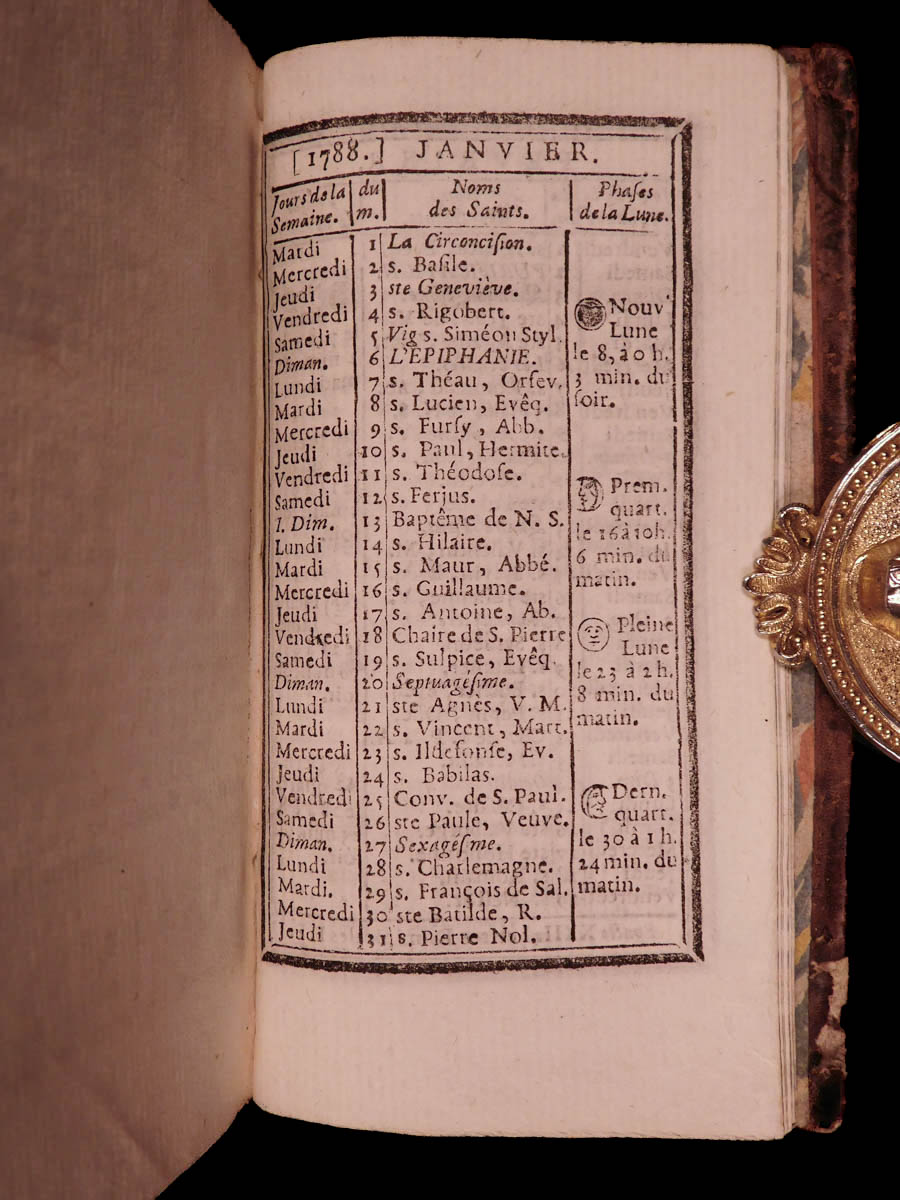 [1788.] JANVIER.
Jours de la Semaine. | du m. | Noms des Saints. | Phaſes de la Lune.
Mardi 1 La Circonciſion.
Mercredi 2 s. Baſile.
Jeudi 3 ste Geneviève.
Vendredi 4 s. Rigobert.
Samedi 5 Vig s. Siméon Styl.
Diman. 6 L'EPIPHANIE.
Lundi 7 s. Théau, Orfev.
Mardi 8 s. Lucien, Evêq.
Mercredi 9 s. Furſy, Abb.
Jeudi 10 s. Paul, Hermite.
Vendredi 11 s. Théodoſe.
Samedi 12 s. Ferjus.
1. Dim. 13 Baptême de N. S.
Lundi 14 s. Hilaire.
Mardi 15 s. Maur, Abbé.
Mercredi 16 s. Guillaume.
Jeudi 17 s. Antoine, Ab.
Vendredi 18 Chaire de S. Pierre
Samedi 19 s. Sulpice, Evêq.
Diman. 20 Septuagéſime.
Lundi 21 ste Agnès, V. M.
Mardi 22 s. Vincent, Mart.
Mercredi 23 s. Ildefonſe, Ev.
Jeudi 24 s. Babilas.
Vendredi 25 Conv. de S. Paul.
Samedi 26 ste Paule, Veuve.
Diman. 27 Sexagéſme.
Lundi 28 s. Charlemagne.
Mardi. 29 s. François de Sal.
Mercredi 30 ste Batilde, R.
Jeudi 31 s. Pierre Nol.
Nouv
Lune
le 8, à 0 h.
3 min. du
ſoir.
Prem.
quart.
le 16 à 10h.
6 min. du
matin.
Pleine
Lune
le 23 à 2h.
8 min. du
matin.
Dern.
quart.
le 30 à 1h.
24 min. du
matin.